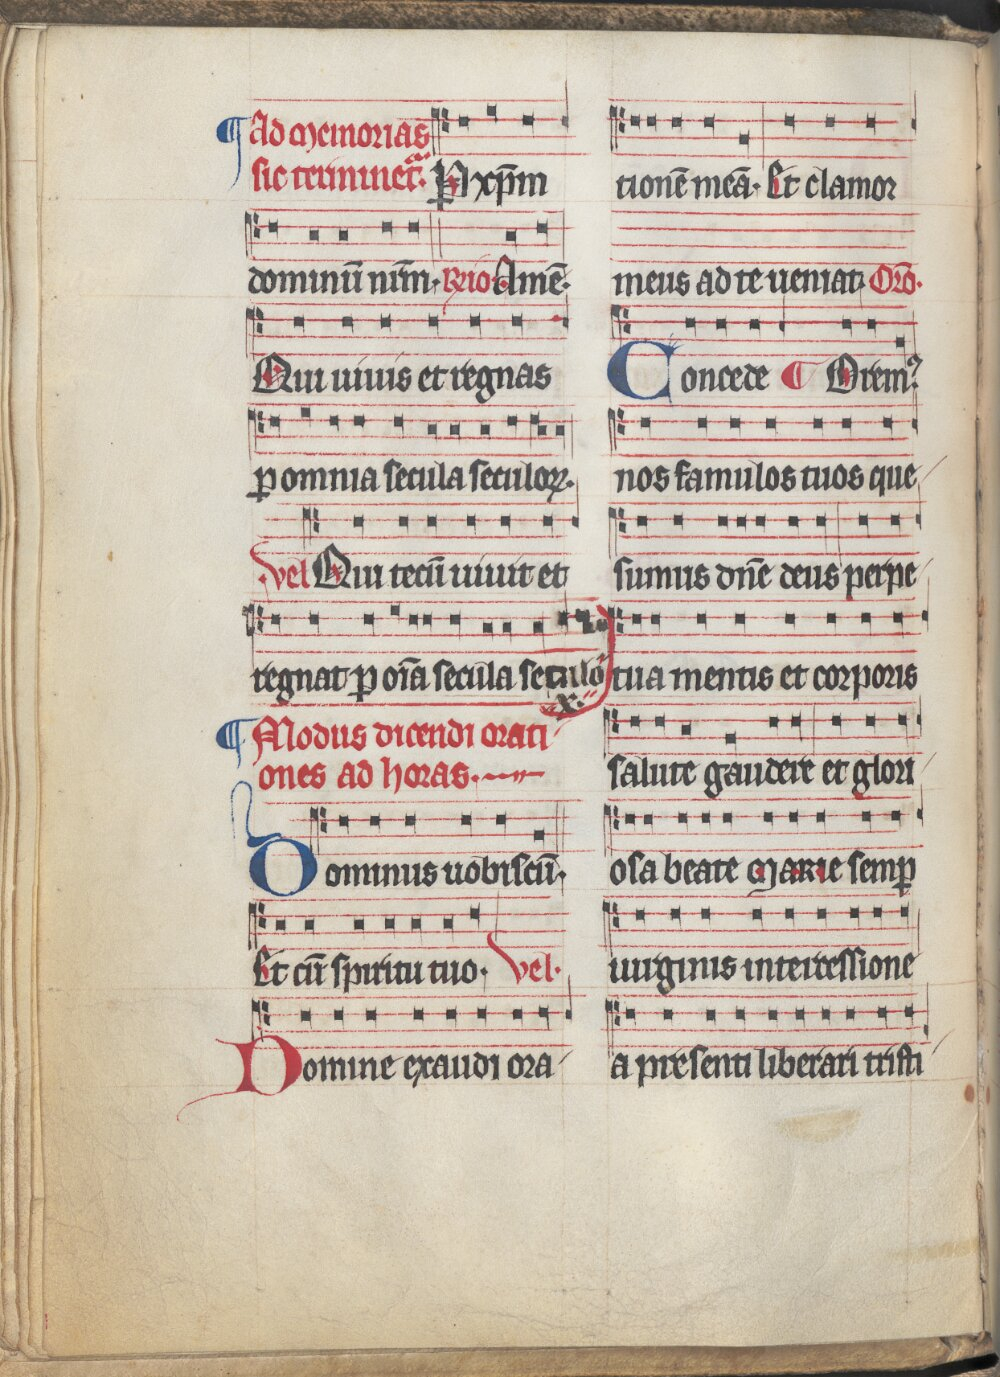 ¶ Ad memorias
sic terminetʳ.
P xp̄m
dominū nr̄m. Rn̄o. Amē.
Qui uiuis et regnas
ꝑ omnia secula seculoꝝ.
vel Qui tecū uiuit et
regnat ꝑ oīa secula seculo
ꝝ.
¶ Modus dicendi orati
ones ad horas.
Dominus uobiscū.
Et cū spiritu tuo. Vel.
Domine exaudi ora
tionē meā. Et clamor
meus ad te ueniat. Orō.
Concede ¶ Orem?
nos famulos tuos que
sumus dn̄e deus perpe
tua mentis et corporis
salute gaudere et glori
osa beate Marie semꝑ
uirginis intercessione
a presenti liberari tristi